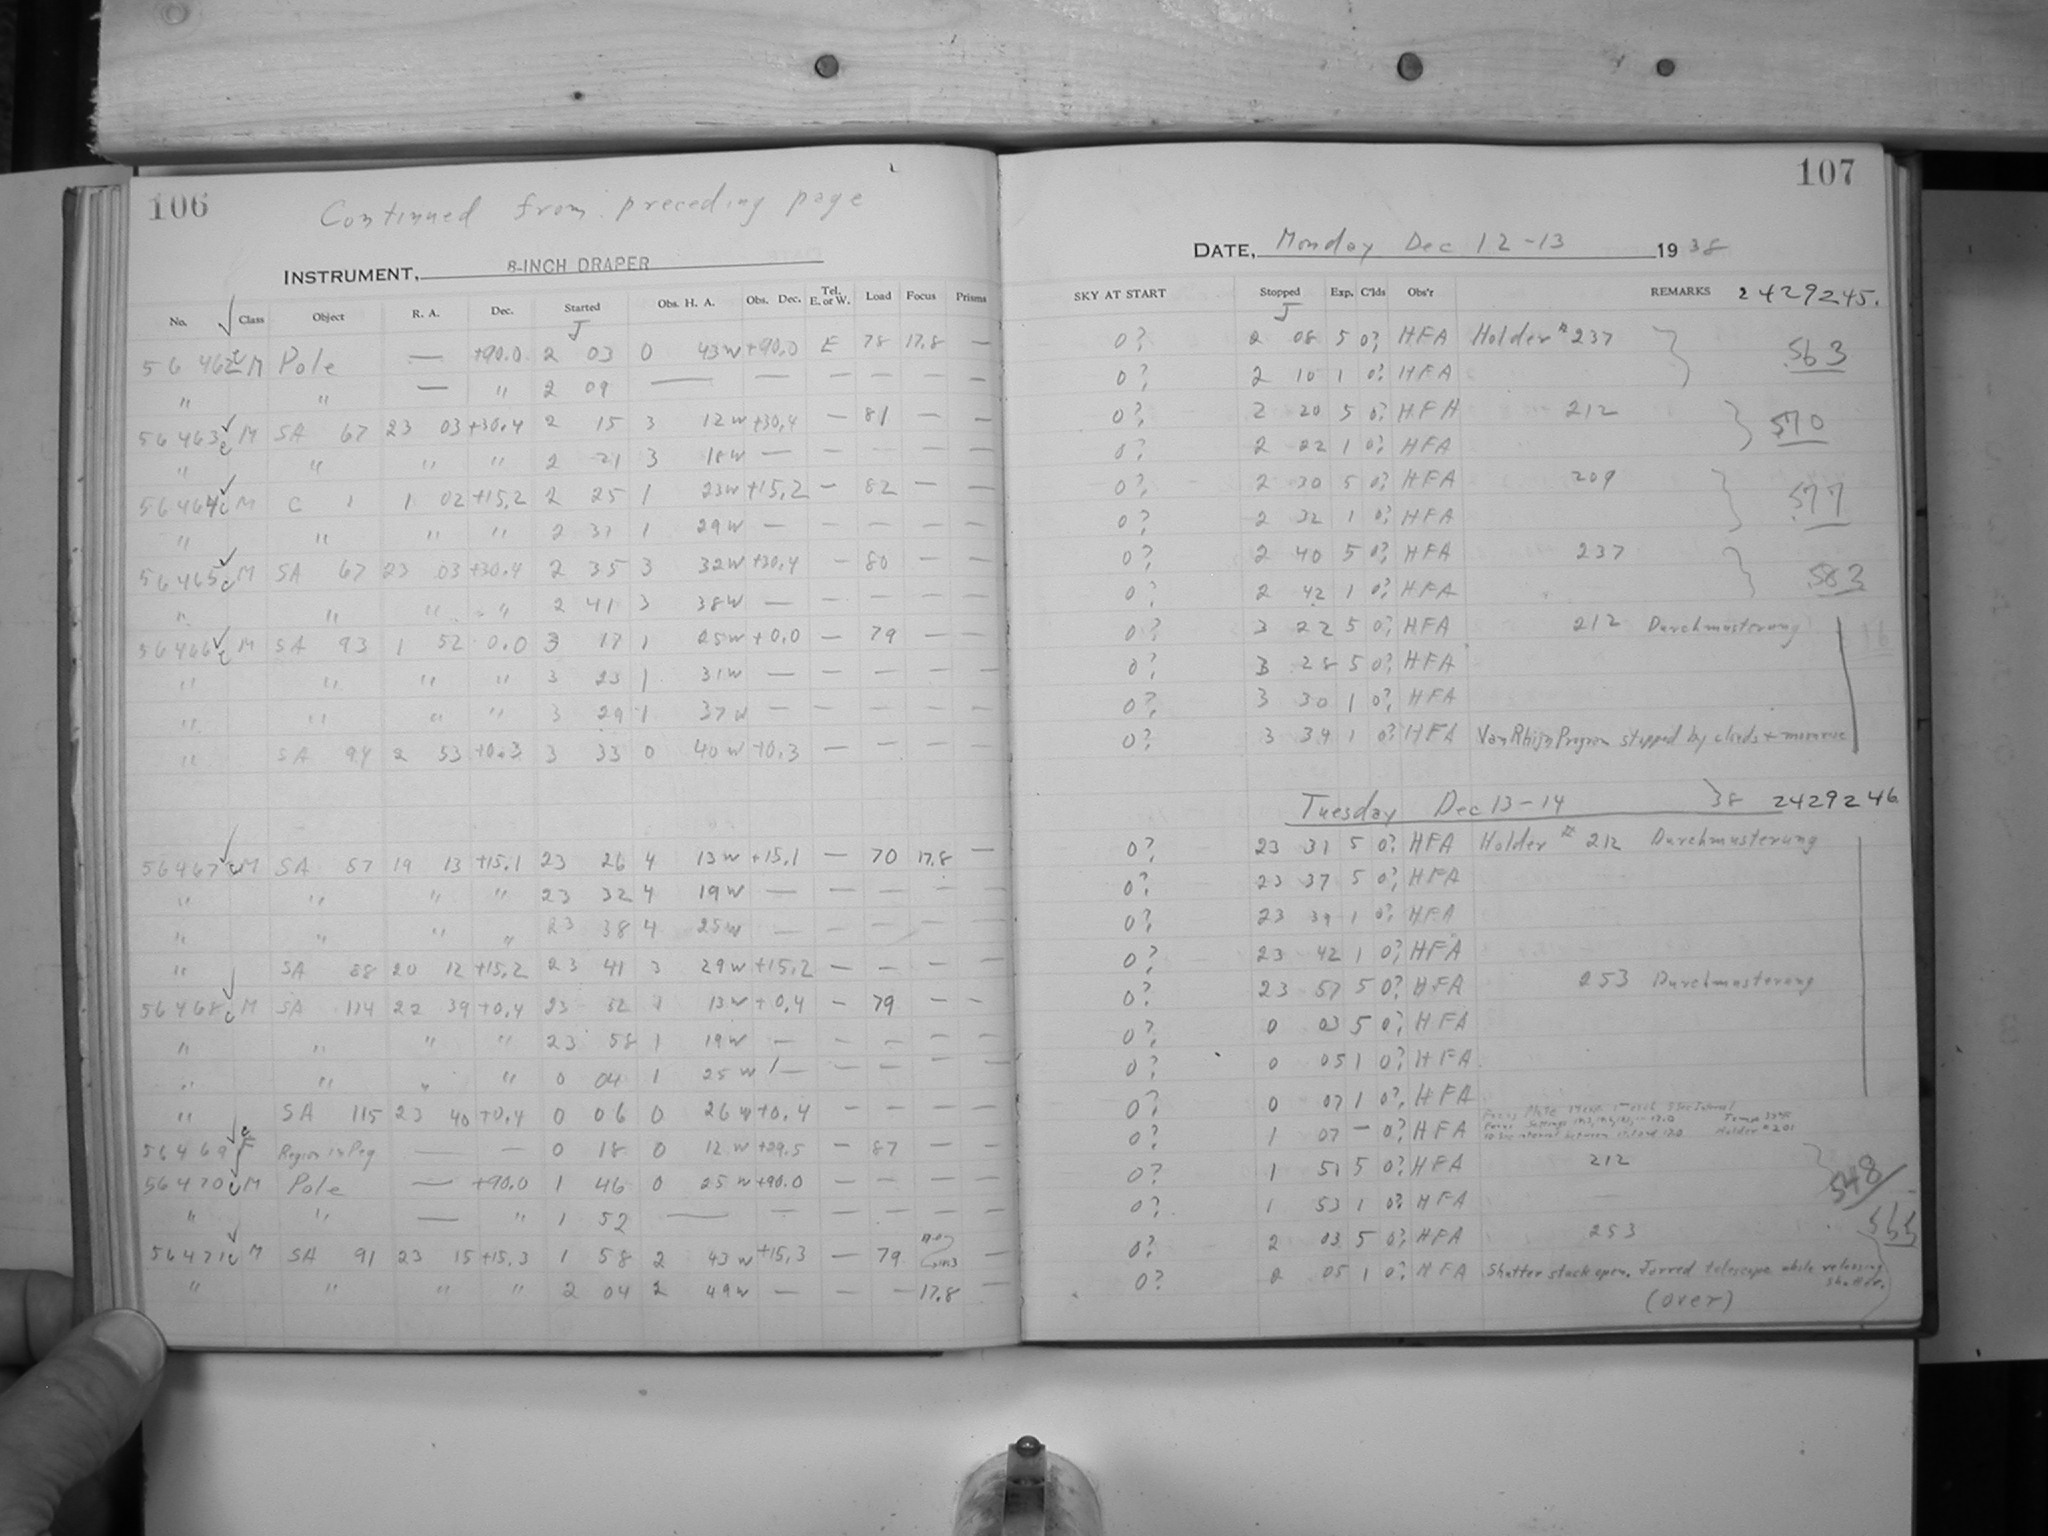 106
Continued from preceding page
INSTRUMENT, 8-INCH DRAPER
No. Class Object R. A. Dec. Started Obs. H. A. Obs. Dec. Tel. E. or W. Load Focus Prisms
J
56462 c M Pole — +90.0 2 03 0 43w +90.0 E 78 17.8 —
" " — " 2 09 — — — — — —
56463 c M SA 67 23 03 +30.4 2 15 3 12w +30.4 — 81 — —
" " " " 2 21 3 18w — — — — —
56464 c M C 1 1 02 +15.2 2 25 1 23w +15.2 — 82 — —
" " " " 2 31 1 29w — — — — —
56465 c M SA 67 23 03 +30.4 2 35 3 32w +30.4 — 80 — —
" " " " 2 41 3 38w — — — — —
56466 c M SA 93 1 52 0.0 3 17 1 25w +0.0 — 79 — —
" " " " 3 23 1 31w — — — — —
" " " " 3 29 1 37w — — — — —
" SA 94 2 53 +0.3 3 33 0 40w +0.3 — — — —
56467 c M SA 87 19 13 +15.1 23 26 4 13w +15.1 — 70 17.8 —
" " " " 23 32 4 19w — — — — —
" " " " 23 38 4 25w — — — — —
" SA 88 20 12 +15.2 23 41 3 29w +15.2 — — — —
56468 c M SA 114 22 39 +0.4 23 52 1 13w +0.4 — 79 — —
" " " " 23 58 1 19w — — — — —
" " " " 0 04 1 25w — — — — —
" SA 115 23 40 +0.4 0 06 0 26w +0.4 — — — —
56469 c F Region in Peg — — 0 18 0 12w +29.5 — 87 — —
56470 c M Pole — +90.0 1 46 0 25w +90.0 — — — —
" " — " 1 52 — — — — — —
56471 c M SA 91 23 15 +15.3 1 58 2 43w +15.3 — 79 —
" " " " 2 04 2 49w — — — 17.8 —
107
DATE, Monday Dec 12-13 1938
SKY AT START Stopped Exp. C'lds Obs'r REMARKS 2429245.
J
0? 2 08 5 0? HFA Holder # 237 563
0? 2 10 1 0? HFA
0? 2 20 5 0? HFA 212 570
0? 2 22 1 0? HFA
0? 2 30 5 0? HFA 209 577
0? 2 32 1 0? HFA
0? 2 40 5 0? HFA 237 583
0? 2 42 1 0? HFA
0? 3 22 5 0? HFA 212 Durchmusterung
0? 3 28 5 0? HFA
0? 3 30 1 0? HFA
0? 3 39 1 0? HFA Van Rhijn Program stopped by clouds +
Tuesday Dec 13-14 38 2429246
0? 23 31 5 0? HFA Holder # 212 Durchmusterung
0? 23 37 5 0? HFA
0? 23 39 1 0? HFA
0? 23 42 1 0? HFA
0? 23 57 5 0? HFA 253 Durchmusterung
0? 0 03 5 0? HFA
0? 0 05 1 0? HFA
0? 0 07 1 0? HFA
0? 1 07 — 0? HFA Focus Plate Holder # 201
0? 1 51 5 0? HFA 212 548
0? 1 53 1 0? HFA
0? 2 03 5 0? HFA 253
0? 2 05 1 0? HFA Shutter stuck open. Jarred telescope while releasing shutter.
(over)